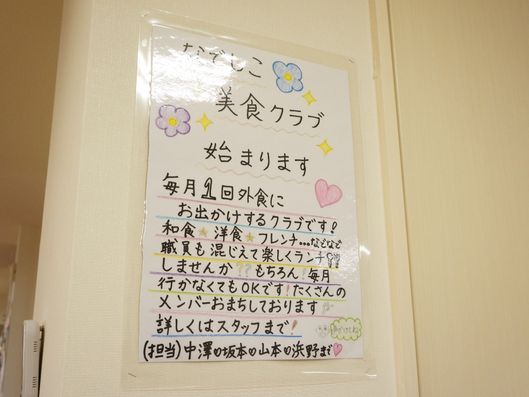 なでしこ
美食クラブ
始まります
毎月1回外食に
お出かけするクラブです!
和食★洋食★フレンチ...などなど
職員も混じえて楽しくランチ
しませんか??もちろん!毎月
行かなくてもOKです!たくさんの
メンバーおまちしております
詳しくはスタッフまで!
(担当)中澤の坂本の山本の浜野まで